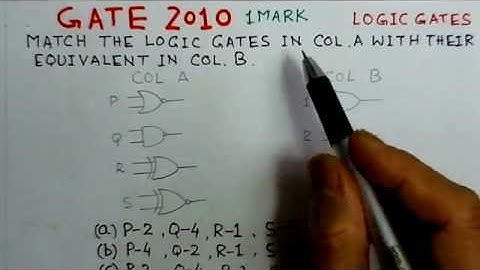 GATE 2010 1 MARK LOGIC GATES
MATCH THE LOGIC GATES IN COL. A WITH THEIR
EQUIVALENT IN COL. B.
COL A COL B
P 1
Q 2
R
S
(a) P-2 , Q-4 , R-1 , S
(b) P-4 , Q-2 , R-1 , S